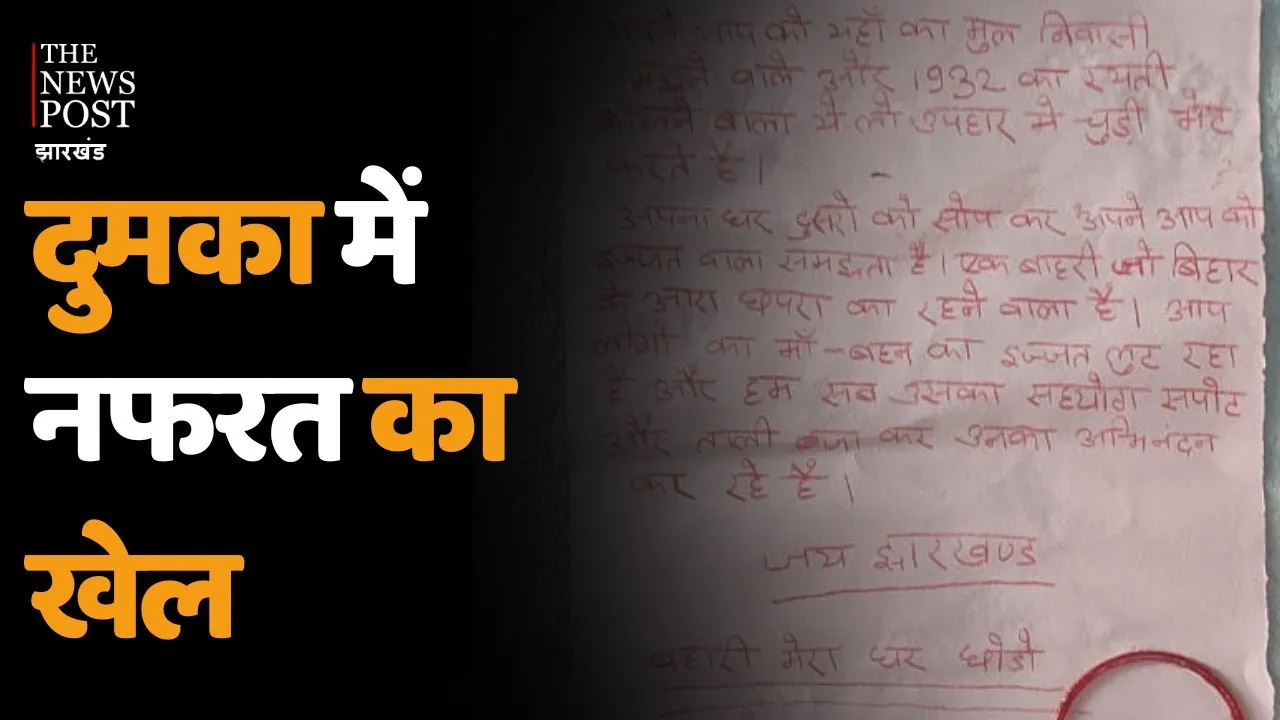 THE
NEWS
POST
झारखंड
दुमका में
नफरत का
खेल
आप को यहाँ का मुल निवासी
वाले और 1932 का
वाला ये लो उपहार मे चुड़ी भेट
करते है।
अपना घर दुसरो को सोप कर अपने आप को
इज्जत वाला समझता है। एक बाहरी जो बिहार
के आरा छपरा का रहने वाला है। आप
लोगो का माँ-बहन का इज्जत लुट रहा
है और हम सब उसका सहयोग सपोट
और ताली बजा कर उनका अभिनंदन
कर रहे है।
जय झारखण्ड
वहारी मेरा घर छोडो